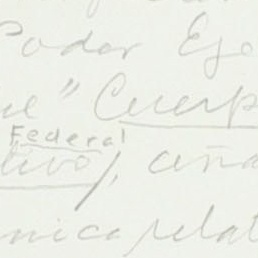 Poder Eje
" Cuerp
Federal
tivo), aña
nica relat